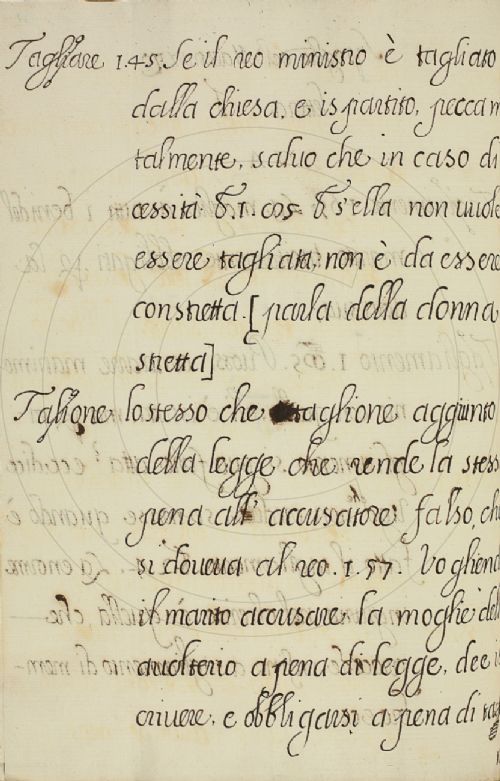 Tagliare 1.45. Se il reo ministro è tagliato
dalla chiesa, e is partito, peccam
talmente, saluo che in caso di
cessità &.1. cos. & s'ella non uuole
essere tagliata: non è da essere
constretta. [parla della donna
stretta]
Taglione lo stesso che taglione aggiunto
della legge che rende la stess
pena all' accusatore falso, ch
si doueua al reo. 1.57. Vogliend
il marito accusare la moglie dell
auolterio a pena di legge, dee is
criuere, e obbligarsi a pena di tag